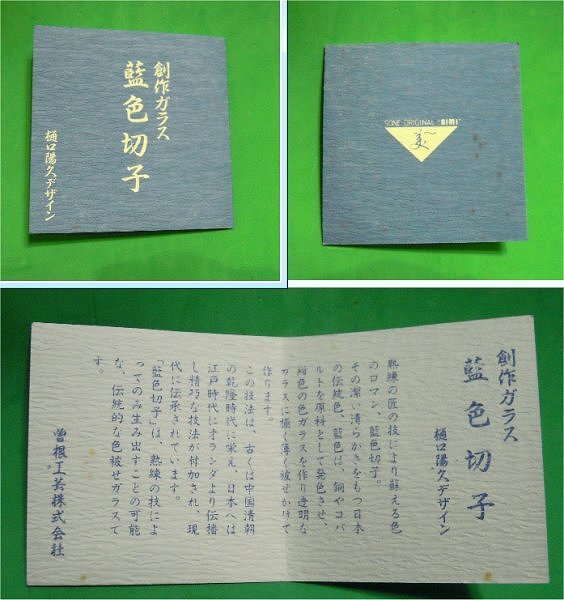 創作ガラス
藍色切子
樋口陽久デザイン
SONE ORIGINAL "BIMI"
美
創作ガラス
藍色切子
樋口陽久デザイン
熟練の匠の技により蘇える色
のロマン、藍色切子。
その潔い清らかさをもつ日本
の伝統色、藍色は、銅やコバ
ルトを原料として発色させ、
紺色の色ガラスを作り透明な
ガラスに極く薄く被せかけて
作ります。
この技法は、古くは中国清朝
の乾隆時代に栄え、日本へは
江戸時代にオランダより伝播
し精巧な技法が付加され、現
代に伝承されています。
「藍色切子」は、熟練の技によ
ってのみ生み出すことの可能
な、伝統的な色被せガラスで
す。
曽根工芸株式会社